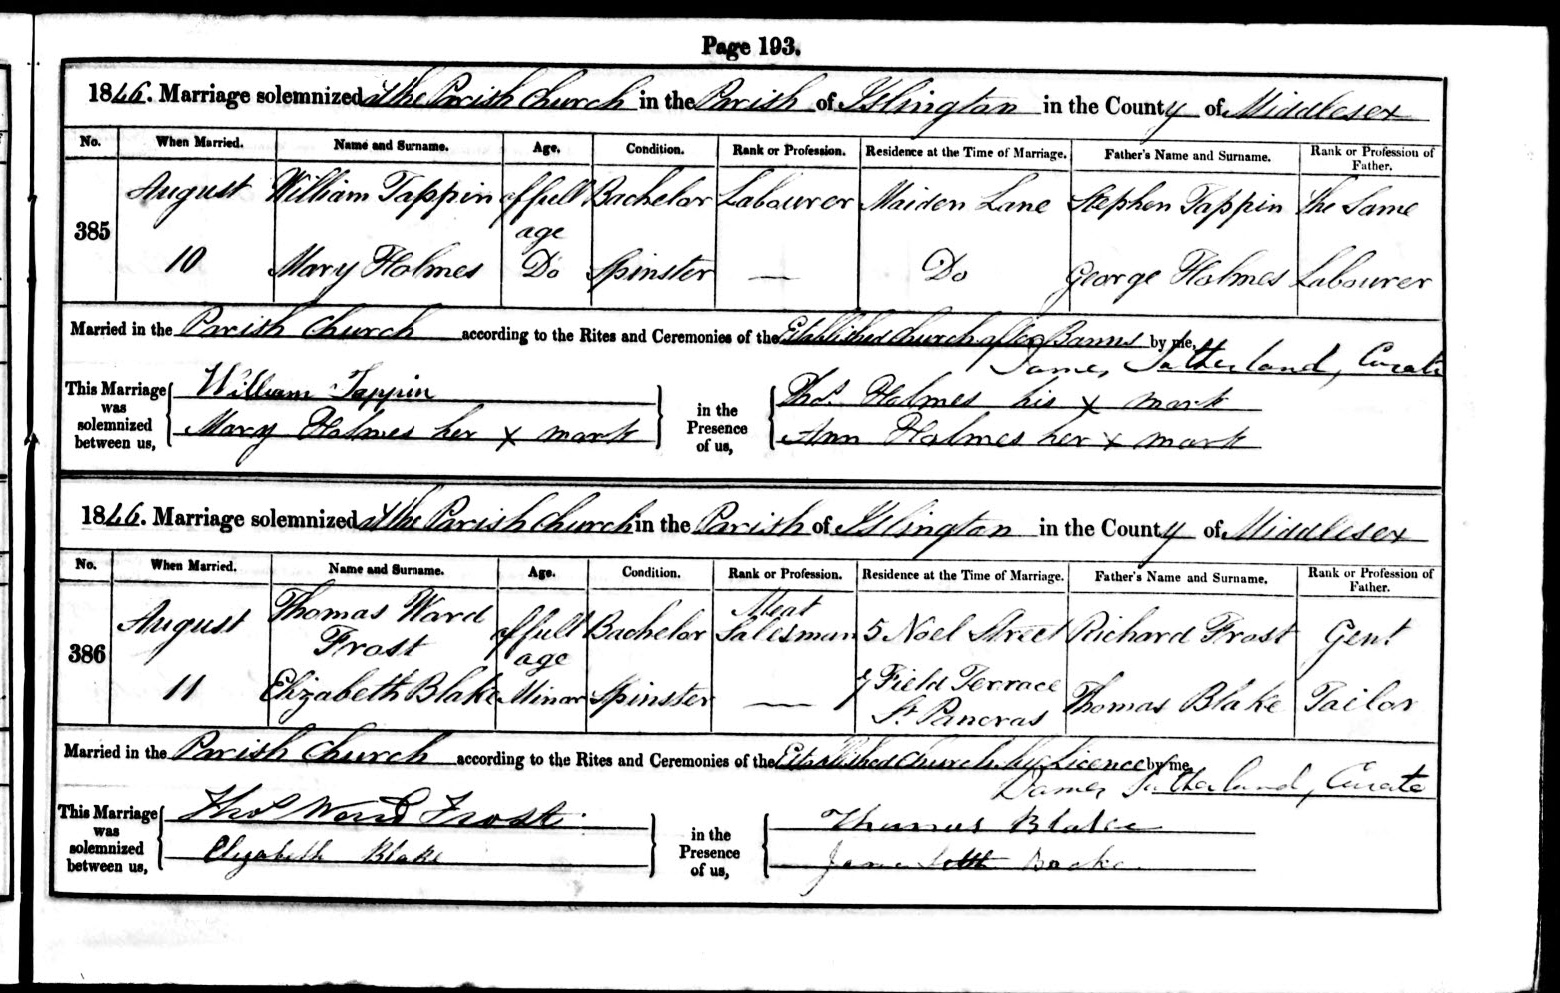 Page 193.
1846. Marriage solemnized at the Parish Church in the Parish of Islington in the County of Middlesex
No. When Married. Name and Surname. Age. Condition. Rank or Profession. Residence at the Time of Marriage. Father's Name and Surname. Rank or Profession of Father.
385 August 10 William Tappin of full age Bachelor Labourer Maiden Lane Stephen Tappin The Same
Mary Holmes Do Spinster — Do George Holmes Labourer
Married in the Parish Church according to the Rites and Ceremonies of the Established Church after Banns by me,
James Sutherland, Curate
This Marriage was solemnized between us, William Tappin in the Presence of us, Thos. Holmes his x mark
Mary Holmes her x mark Ann Holmes her x mark
1846. Marriage solemnized at the Parish Church in the Parish of Islington in the County of Middlesex
No. When Married. Name and Surname. Age. Condition. Rank or Profession. Residence at the Time of Marriage. Father's Name and Surname. Rank or Profession of Father.
386 August 11 Thomas Ward Frost of full age Bachelor Meat Salesman 5 Noel Street Richard Frost Gent
Elizabeth Blake Minor Spinster — 7 Field Terrace St. Pancras Thomas Blake Tailor
Married in the Parish Church according to the Rites and Ceremonies of the Established Church by Licence by me,
James Sutherland, Curate
This Marriage was solemnized between us, Thos Ward Frost in the Presence of us, Thomas Blake
Elizabeth Blake